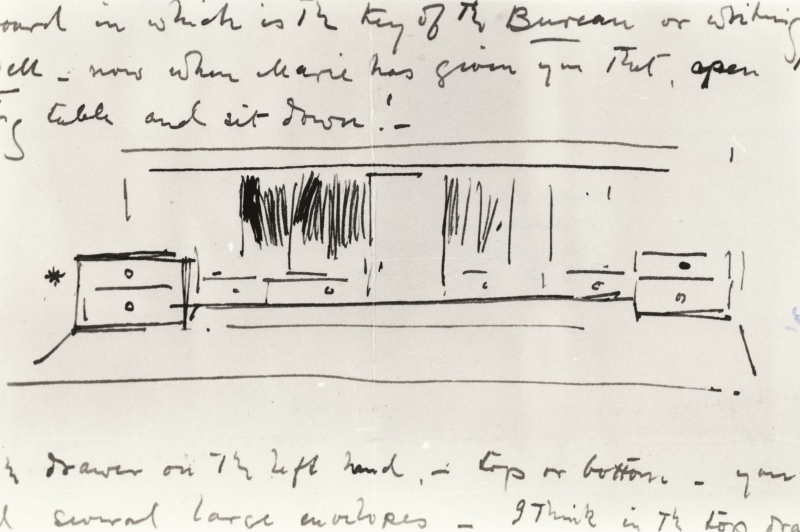 oard in which is the key of the Bureau or writing
ell - now when Marie has given you that, open
table and sit down! -
drawer on the left hand, - top or bottom - you
several large envelopes - I think in the top dra